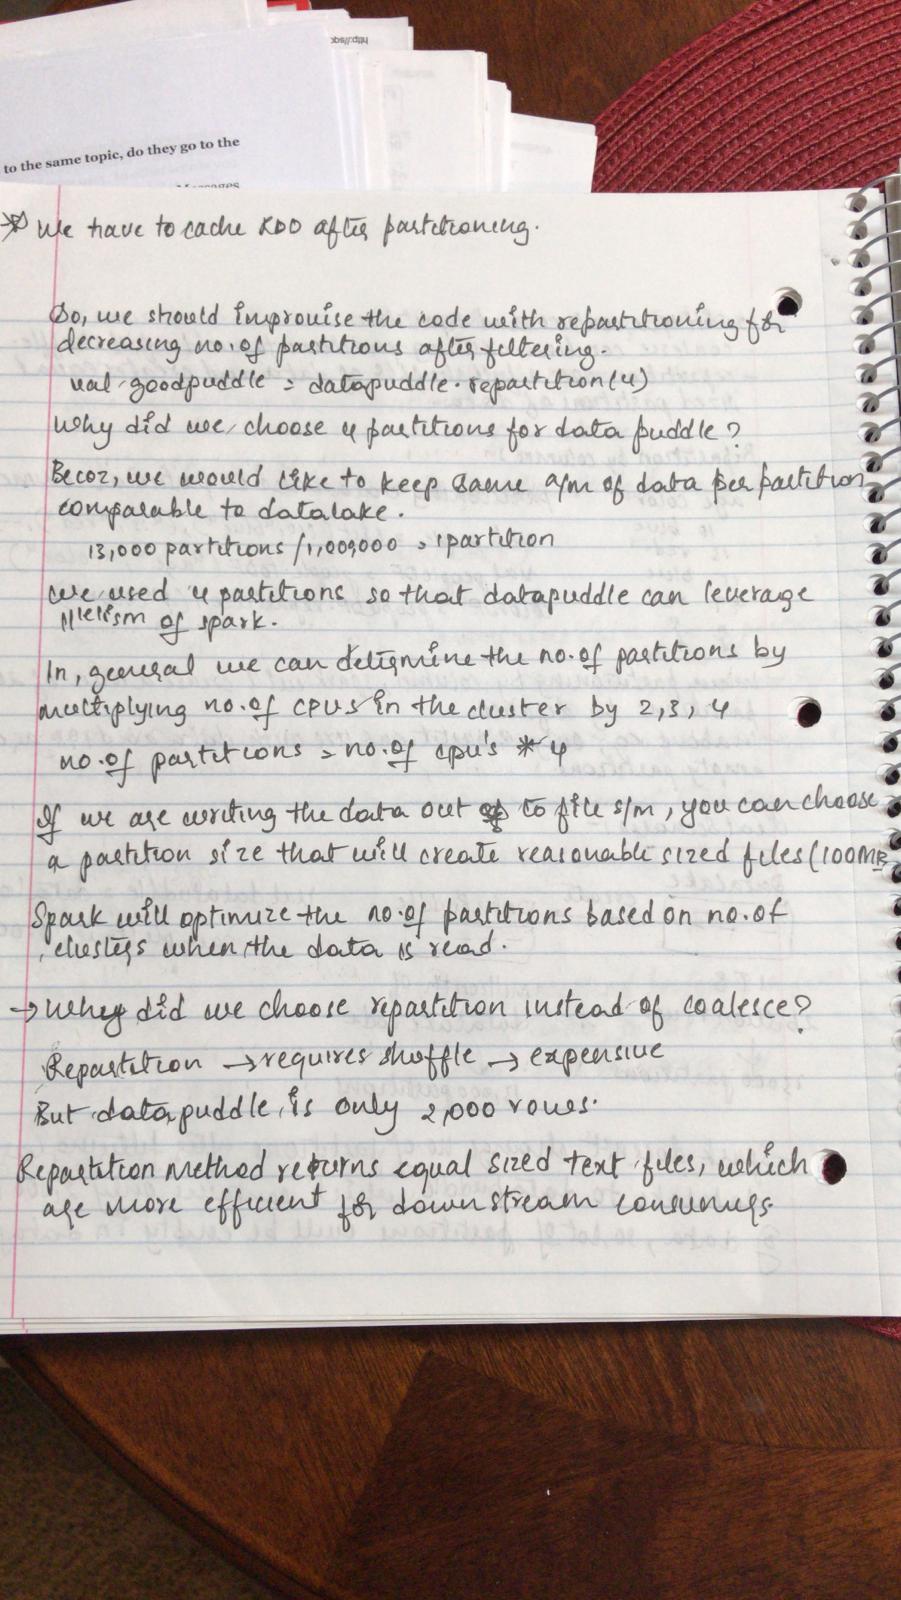 http://sqs
to the same topic, do they go to the
Messages
* We have to cache RDD after partitioning.
So, we should improvise the code with repartitioning for
decreasing no. of partitions after filtering.
val goodpuddle = datapuddle. repartition(4)
Why did we choose 4 partitions for data puddle?
Becoz, we would like to keep same a/m of data per partition
comparable to datalake.
13,000 partitions / 1,000,000 = 1 partition
We used 4 partitions so that datapuddle can leverage
||lelism of spark.
In, general we can determine the no. of partitions by
multiplying no. of CPUS in the cluster by 2, 3, 4
no. of partitions = no. of cpu's * 4
If we are writing the data out to file s/m, you can choose
a partition size that will create reasonable sized files (100MB
Spark will optimize the no. of partitions based on no. of
clusters when the data is read.
→ Why did we choose repartition instead of coalesce?
Repartition → requires shuffle → expensive
But data puddle is only 2,000 rows.
Repartition method returns equal sized text files, which
are more efficient for downstream consumers.